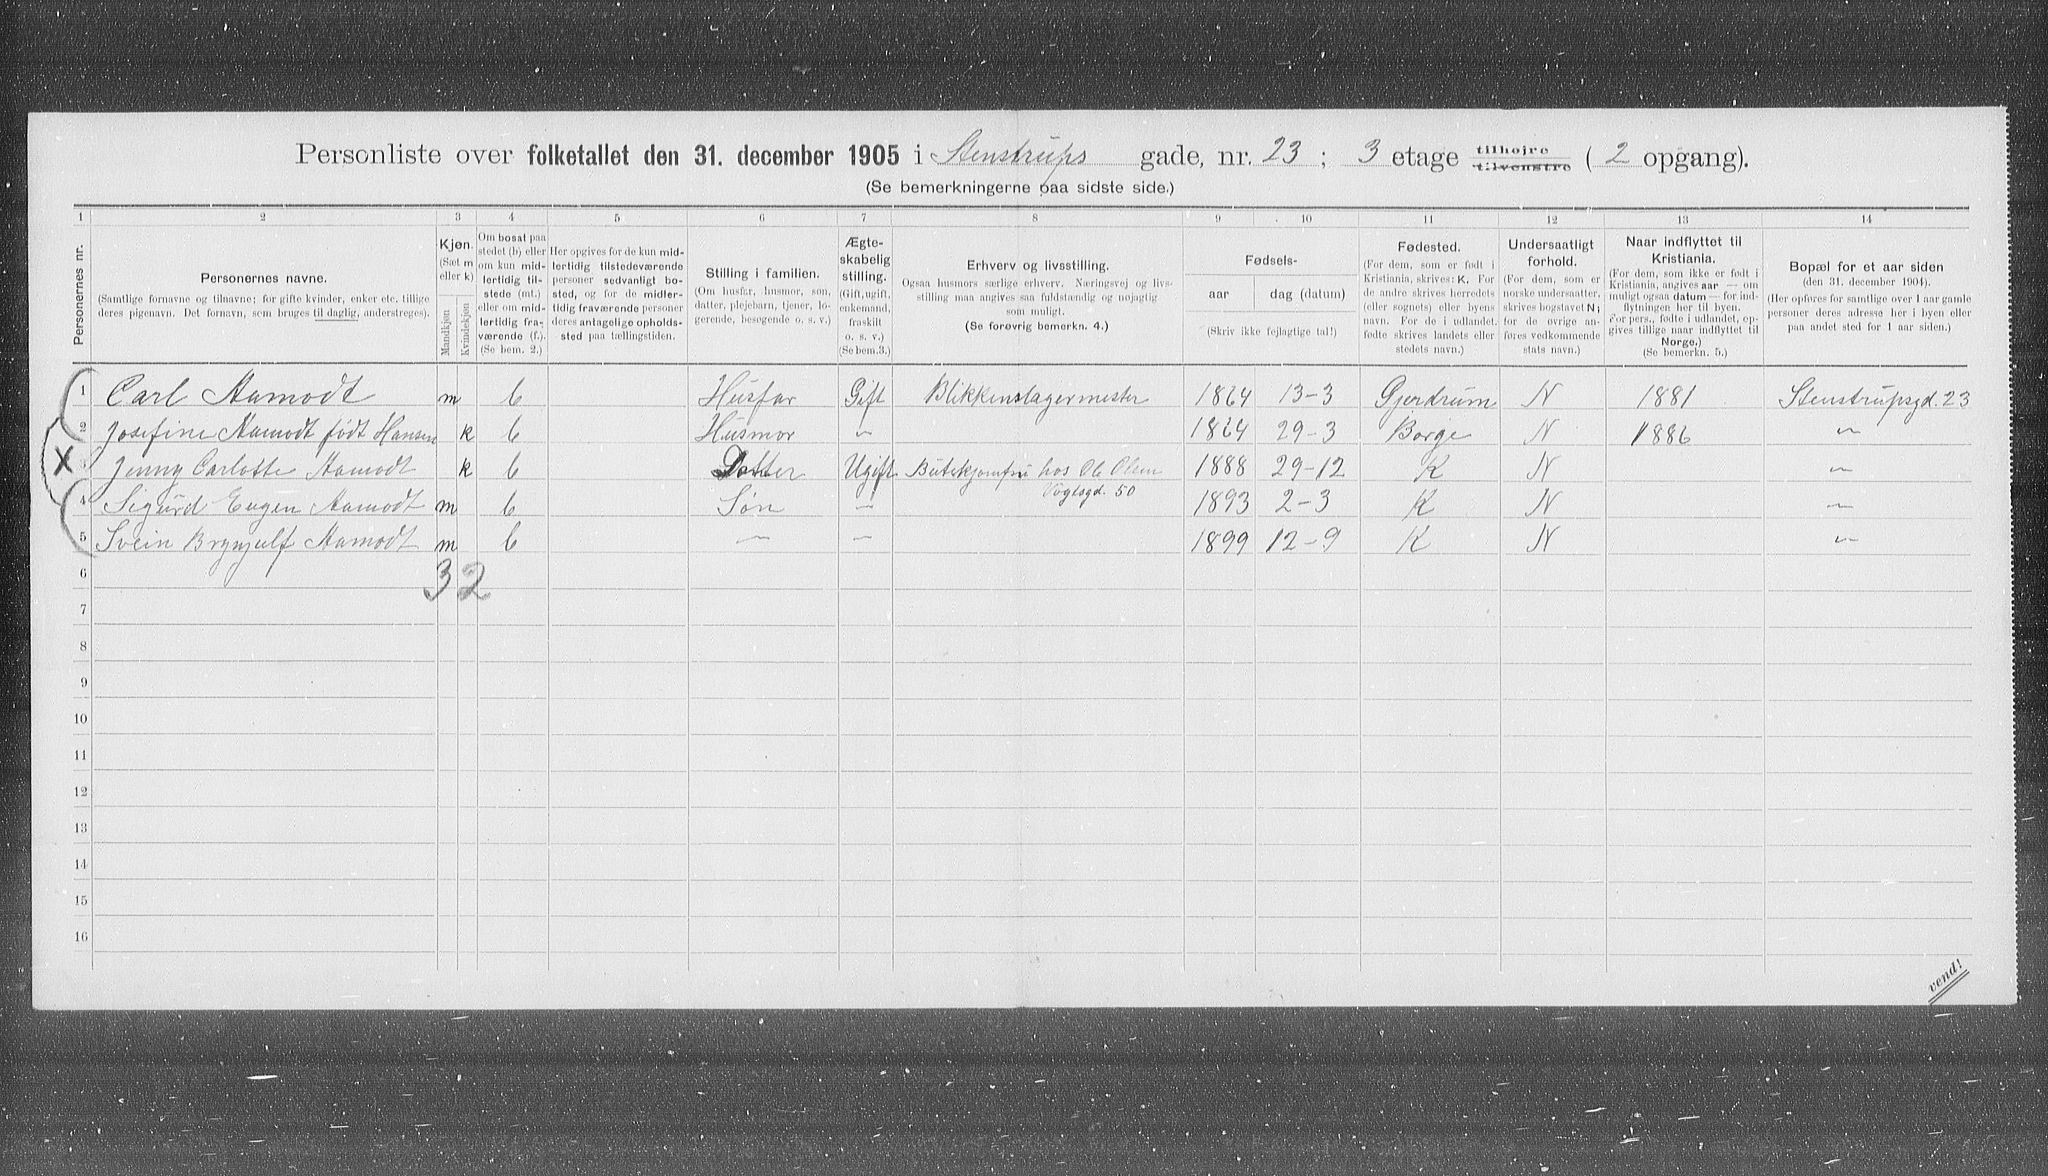 Personliste over folketallet den 31. december 1905 i Stenstrups gade, nr. 23 ; 3 etage tilhøjre tilvenstre ( 2 opgang).
(Se bemerkningerne paa sidste side.)
1 2 3 4 5 6 7 8 9 10 11 12 13 14
Personernes nr.
Personernes navne.
(Samtlige fornavne og tilnavne; for gifte kvinder, enker etc. tillige
deres pigenavn. Det fornavn, som bruges til daglig, anderstreges).
Kjøn.
(Sæt m
eller k)
Mandkjøn
Kvindekjøn
Om bosat paa
stedet (b) eller
om kun mid-
lertidig til-
stede (mt.)
eller om mid-
lertidig fra-
værende (f.).
(Se bem. 2.)
Her opgives for de kun mid-
lertidig tilstedeværende
personer sedvanligt bo-
sted, og for de midler-
tidig fraværende personer
deres antagelige opholds-
sted paa tællingstiden.
Stilling i familien.
(Om husfar, husmor, søn,
datter, plejebarn, tjener, lo-
gerende, besøgende o. s. v.)
Ægte-
skabelig
stilling.
(Gift, ugift,
enkemand,
fraskilt
o. s. v.)
(Se bem.3.)
Erhverv og livsstilling.
Ogsaa husmors særlige erhverv. Næringsvej og livs-
stilling maa angives saa fuldstændig og nøjagtig
som muligt.
(Se forøvrig bemerkn. 4.)
Fødsels-
aar
dag (datum)
(Skriv ikke fejlagtige tal!)
Fødested.
(For dem, som er født i
Kristiania, skrives: K. For
de andre skrives herredets
(eller sognets) eller byens
navn. For de i udlandet
fødte skrives landets eller
stedets navn.)
Undersaatligt
forhold.
(For dem, som er
norske undersaatter,
skrives bogstavet N;
for de øvrige an-
føres vedkommende
stats navn.)
Naar indflyttet til
Kristiania.
(For dem, som ikke er født i
Kristiania, angives aar — om
muligt ogsaa datum — for ind-
flytningen her til byen.
For pers., fødte i udlandet, op-
gives tillige naar indflyttet til
Norge.)
(Se bemerkn. 5.)
Bopæl for et aar siden
(den 31. december 1904).
(Her opføres for samtlige over 1 aar gamle
personer deres adresse her i byen eller
paa andet sted for 1 aar siden.)
1 Carl Aamodt m b Husfar Gift Blikkenslagermester 1864 13-3 Gjerdrum N 1881 Stenstrupsgd. 23
2 Josefine Aamodt født Hansen k b Husmor " 1864 29-3 Borge N 1886 "
X
3 Jenny Carlotte Aamodt k b Datter Ugift Butikjomfru hos Ole Olsen 1888 29-12 K N "
Voglsgd. 50
4 Sigurd Eugen Aamodt m b Søn " 1893 2-3 K N "
5 Svein Brynjulf Aamodt m b " " 1899 12-9 K N "
6
3 2
7
8
9
10
11
12
13
14
15
16
vend!